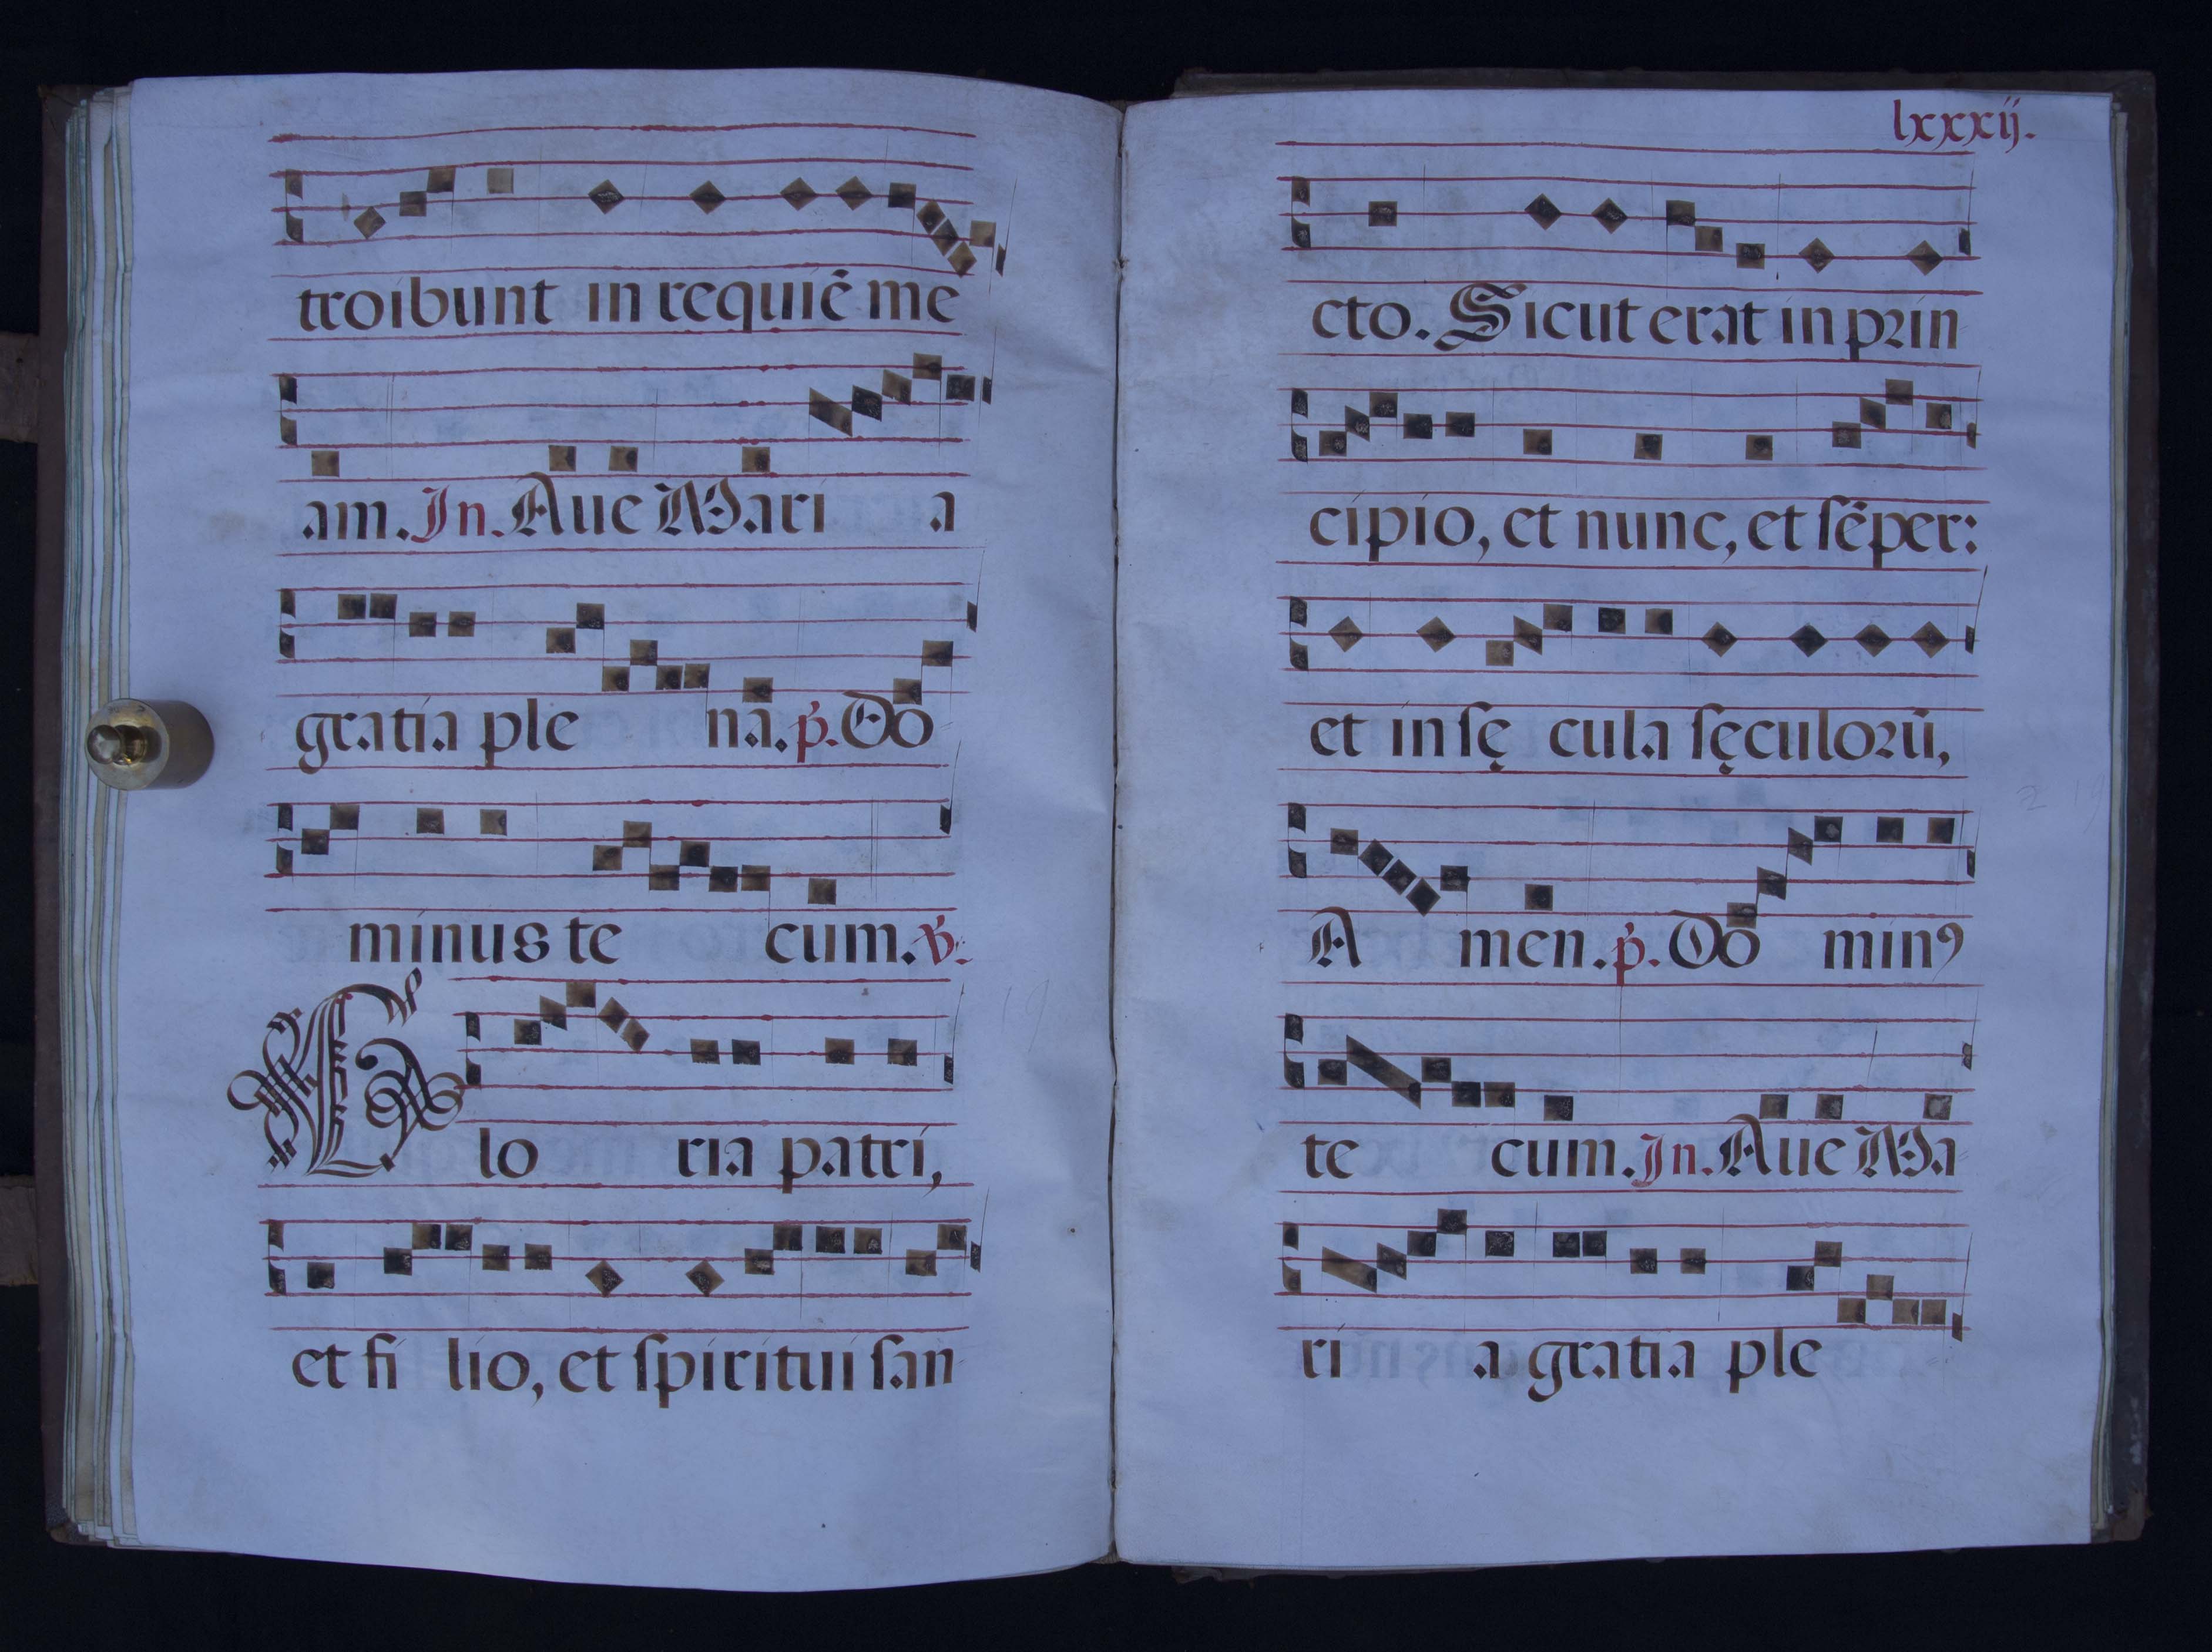 troibunt in requiē me
am. In. Aue Mari a
gratia ple na. p̱. Do
minus te cum. ℣.
Glo ria patri,
et fi lio, et ſpiritui ſan
lxxxij.
cto. Sicut erat in prin
cipio, et nunc, et ſēper:
et in ſę cula ſęculorū,
A men. p̱. Do minꝰ
te cum. In. Aue Ma
ri a gratia ple